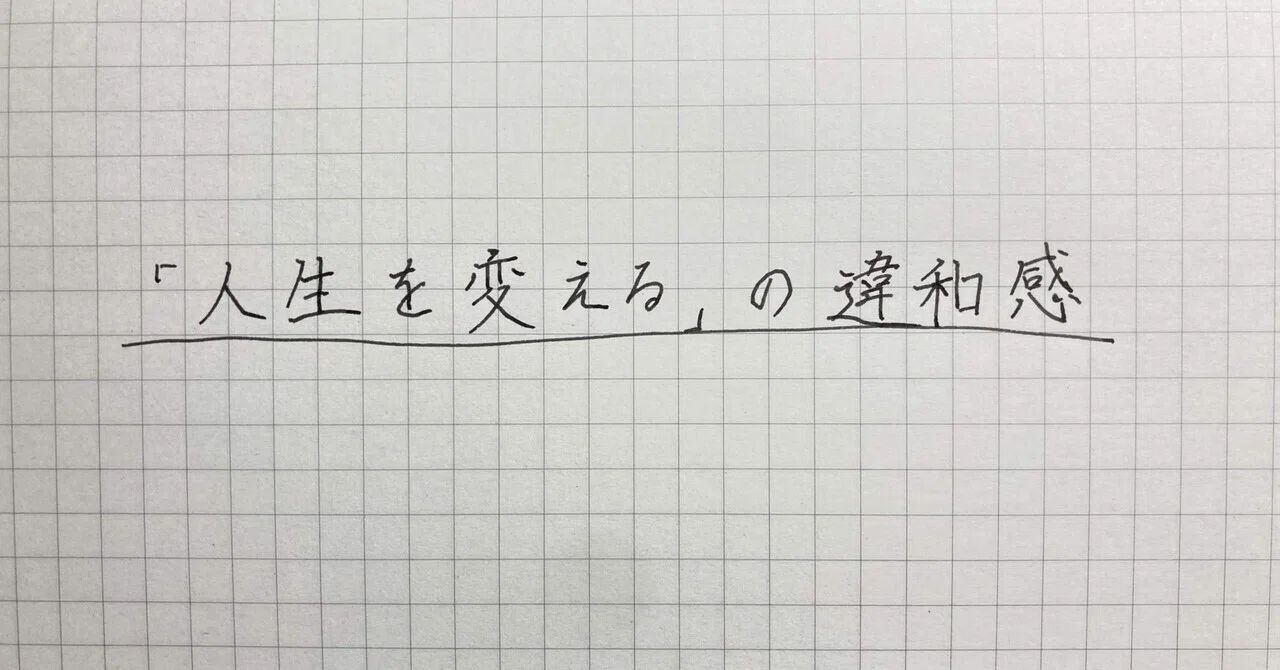 「人生を変える」の違和感